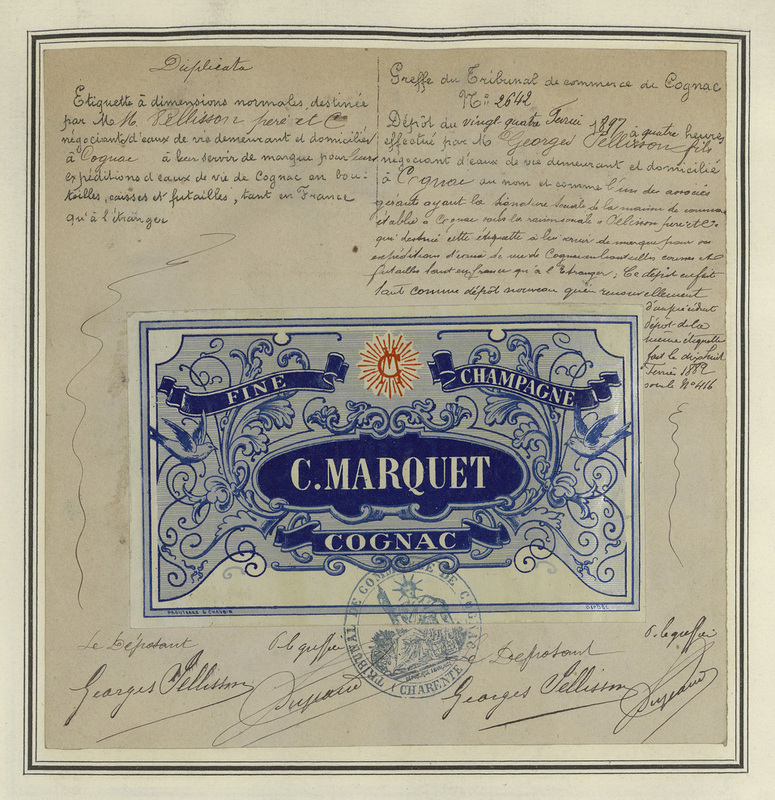 Duplicata
Etiquette à dimensions normales, destinée
par MM. Pellisson père et Co
négociants d'eaux de vie demeurant et domiciliés
à Cognac à leur servir de marque pour leurs
expéditions d'eaux de vie de Cognac en bou-
teilles, caisses et futailles, tant en France
qu'à l'étranger
Greffe du Tribunal de commerce de Cognac
No 2642
Dépôt du vingt quatre Février 1897 à quatre heures
effectué par M. Georges Pellisson fils
négociant d'eaux de vie demeurant et domicilié
à Cognac au nom et comme l'un des associés
gérants ayant la signature sociale de la maison de commerce
établie à Cognac sous la raison sociale Pellisson père et Co
qui destine cette étiquette à lui servir de marque pour ses
expéditions d'eaux de vie de Cognac en bouteilles caisses et
futailles tant en France qu'à l'Etranger; Ce dépôt est fait
tant comme dépôt nouveau qu'en renouvellement
d'un précédent
dépôt de la
même étiquette
fait le dix huit
Février 1882
sous le No 416
FINE CHAMPAGNE
C. MARQUET
COGNAC
TRIBUNAL DE COMMERCE DE COGNAC
CHARENTE
Le Déposant
P. le greffier
Le Déposant
P. le greffier
Georges Pellisson
Georges Pellisson